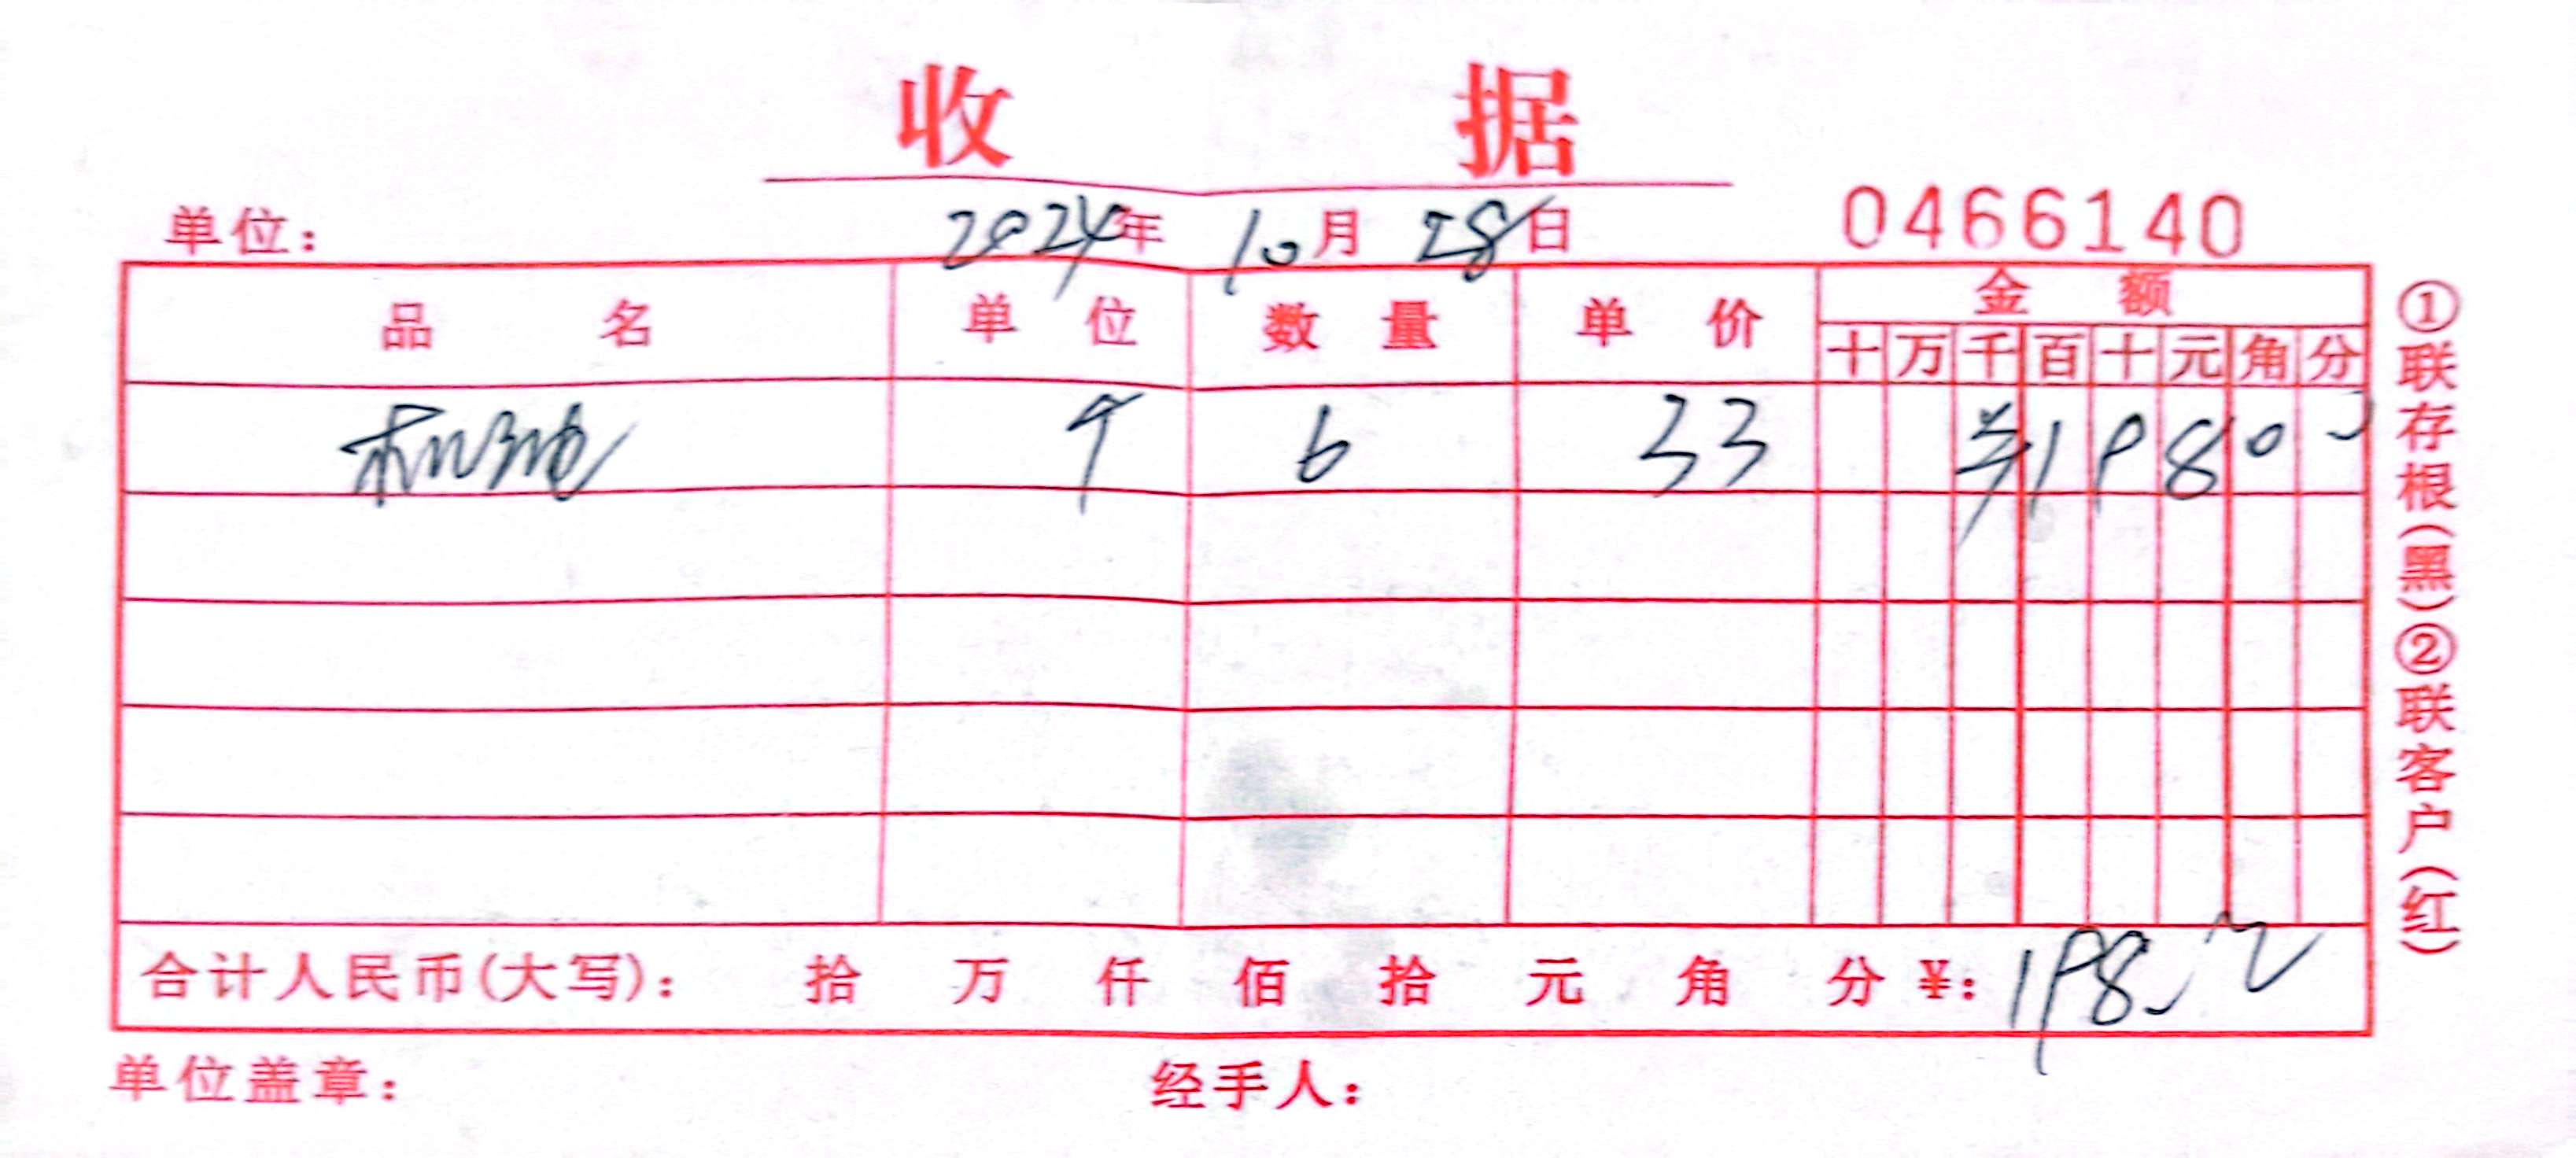 收 据
单位： 2024年 10月 28日 0466140
品 名 单 位 数 量 单 价 金 额
十 万 千 百 十 元 角 分
个 6 33 ¥ 1 9 8 0 0
合计人民币(大写)： 拾 万 仟 佰 拾 元 角 分 ¥：198.00
单位盖章： 经手人：
①联存根(黑)②联客户(红)